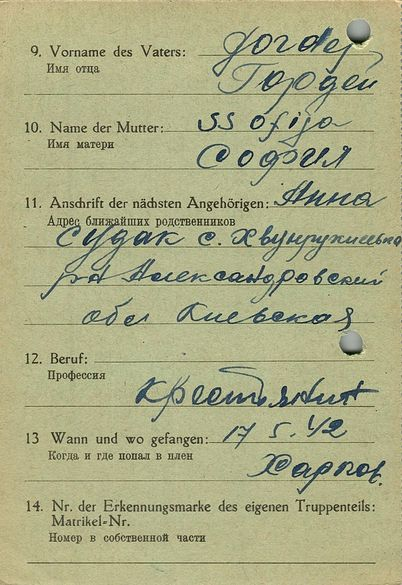 9. Vorname des Vaters:
Имя отца
Гордей
10. Name der Mutter: SSofija
Имя матери
София
11. Anschrift der nächsten Angehörigen: Анна
Адрес ближайших родственников
Судак с.
р-н Александровский
обл Киевская
12. Beruf:
Профессия
Крестянин
13 Wann und wo gefangen: 17 5. 42
Когда и где попал в плен
Харков.
14. Nr. der Erkennungsmarke des eigenen Truppenteils:
Matrikel-Nr.
Номер в собственной части